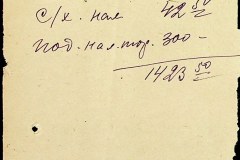 с/х. нал 42 50
под. нал. тор. 300 -
1423 50